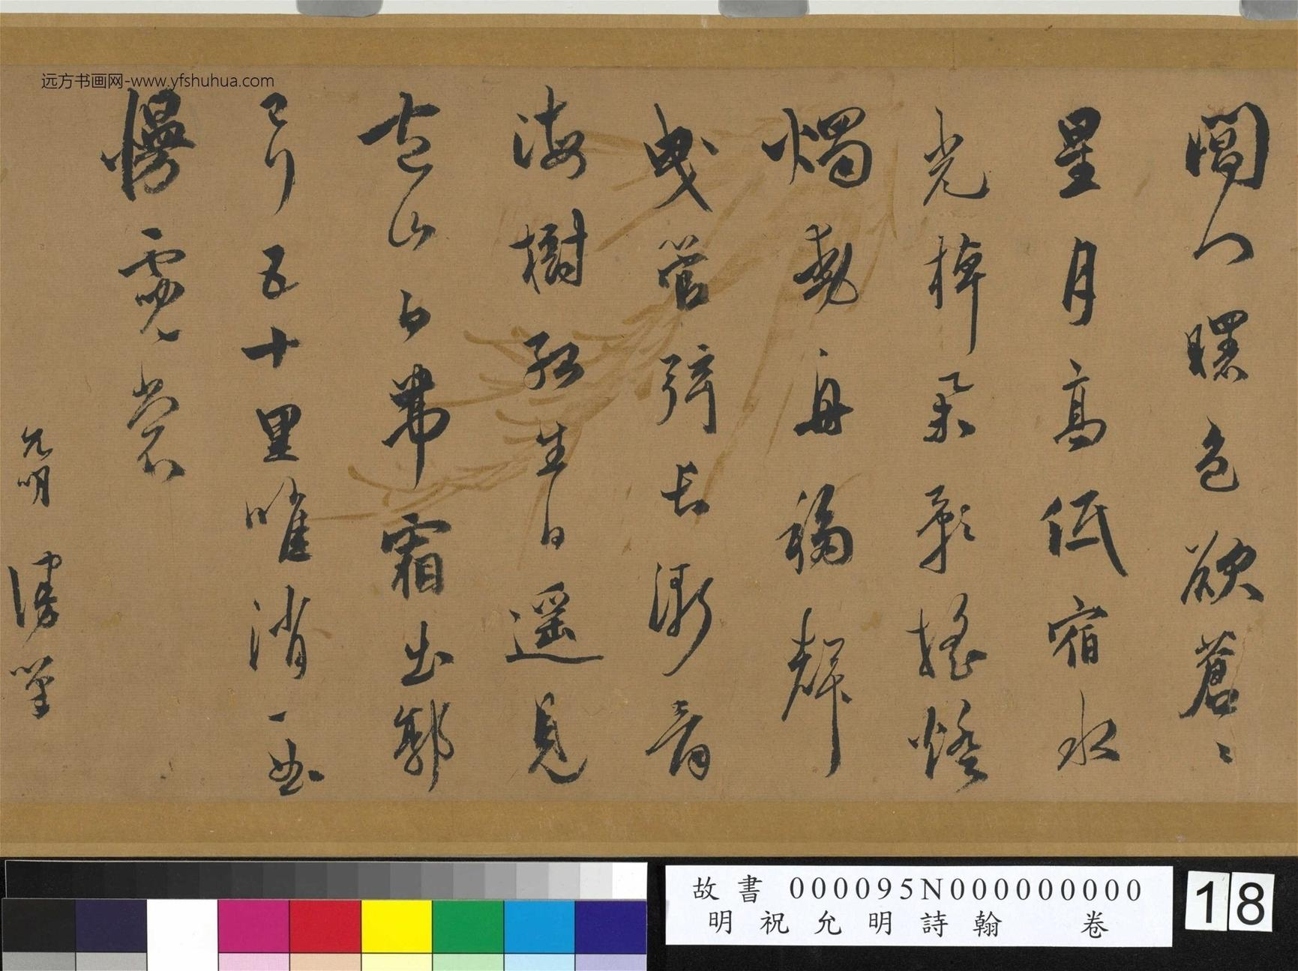 远方书画网-www.yfshuhua.com
閶門曙色欲蒼〻
星月高低宿水
光棹舉影搖燈
燭動舟移聲
曳管弦長漸看
海樹紅生日遥見
包山白帶霜出郭
已行五十里唯消一曲
慢霓裳
允明 漫筆
故書 000095N000000000
明祝允明詩翰 卷
18